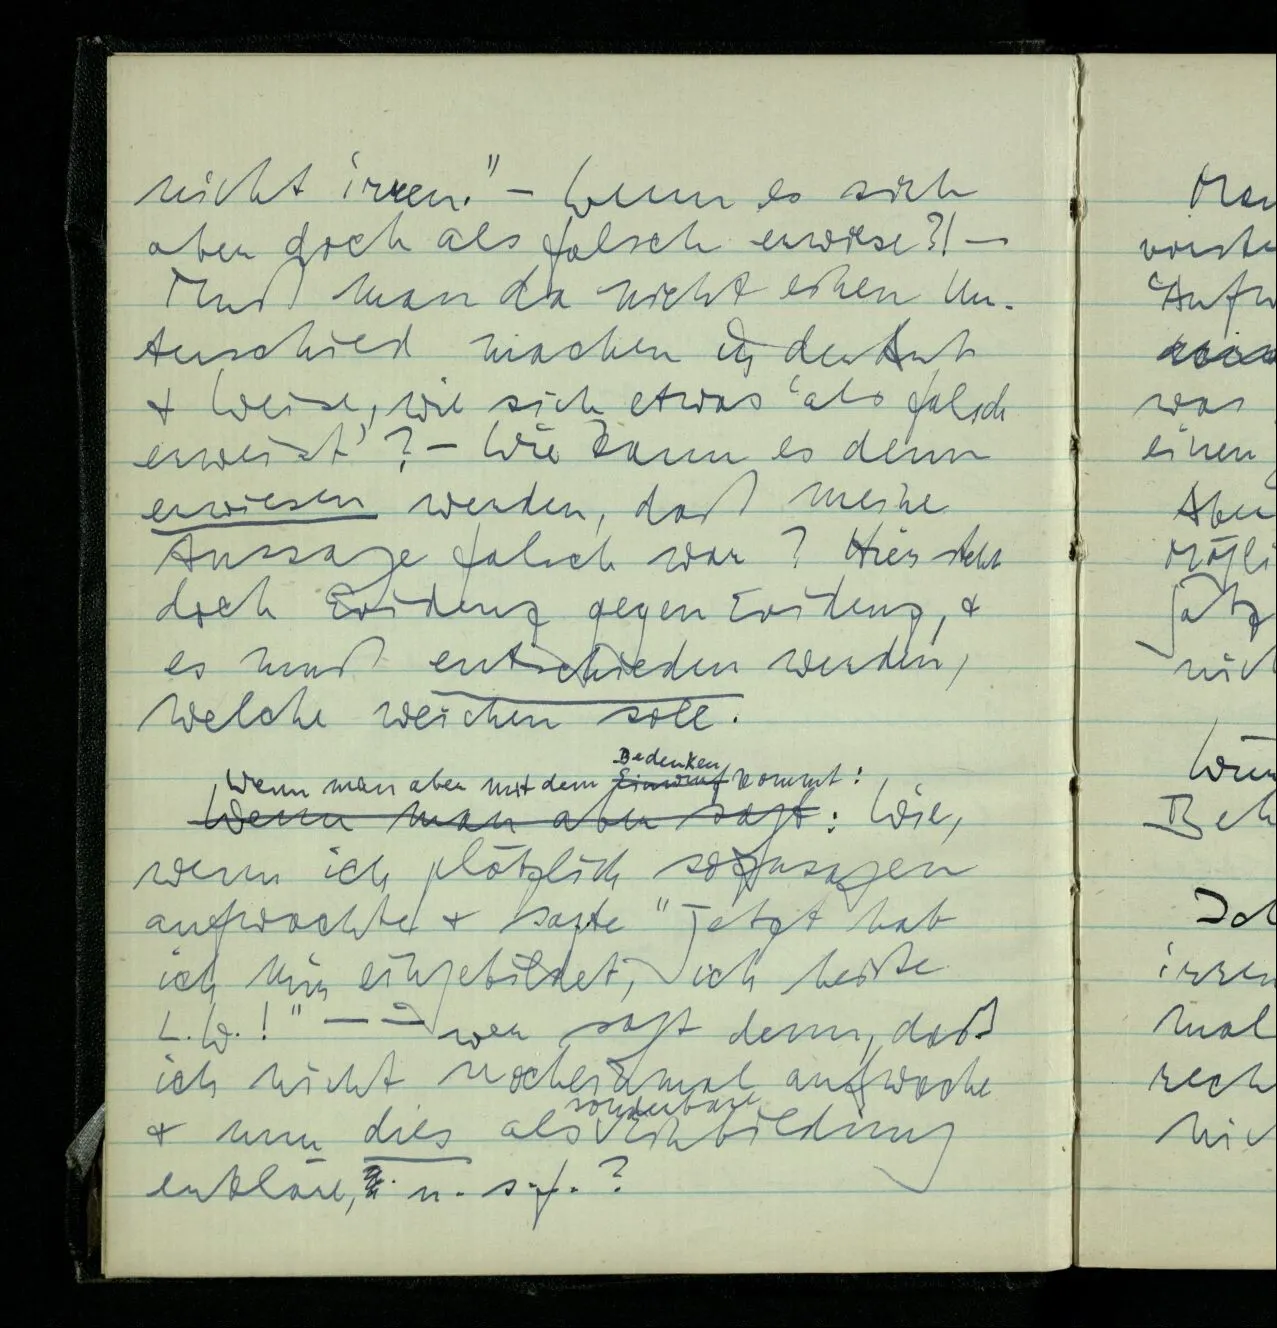 nicht irren." – Wenn es sich
aber doch als falsch erwiese?! –
Muß man da nicht einen Un-
terschied machen in der Art
& Weise, wie sich etwas 'als falsch
erweist'? – Wie kann es denn
erwiesen werden, daß meine
Aussage falsch war? Hier steht
doch Evidenz gegen Evidenz, &
es muß entschieden werden,
welche weichen soll.
Bedenken
Wenn man aber mit dem Einwurf kommt:
Wenn man aber sagt: Wie,
wenn ich plötzlich sozusagen
aufwachte & sagte "Jetzt hab
ich mir eingebildet, ich heiße
L.W.!" – – wer sagt denn, daß
ich nicht nocheinmal aufwache
sonderbare
& nun dies als Einbildung
erkläre, u. s. f. ?
Man
Aufw
was
einen
Aber
Satz
nich
irren
mal
rech